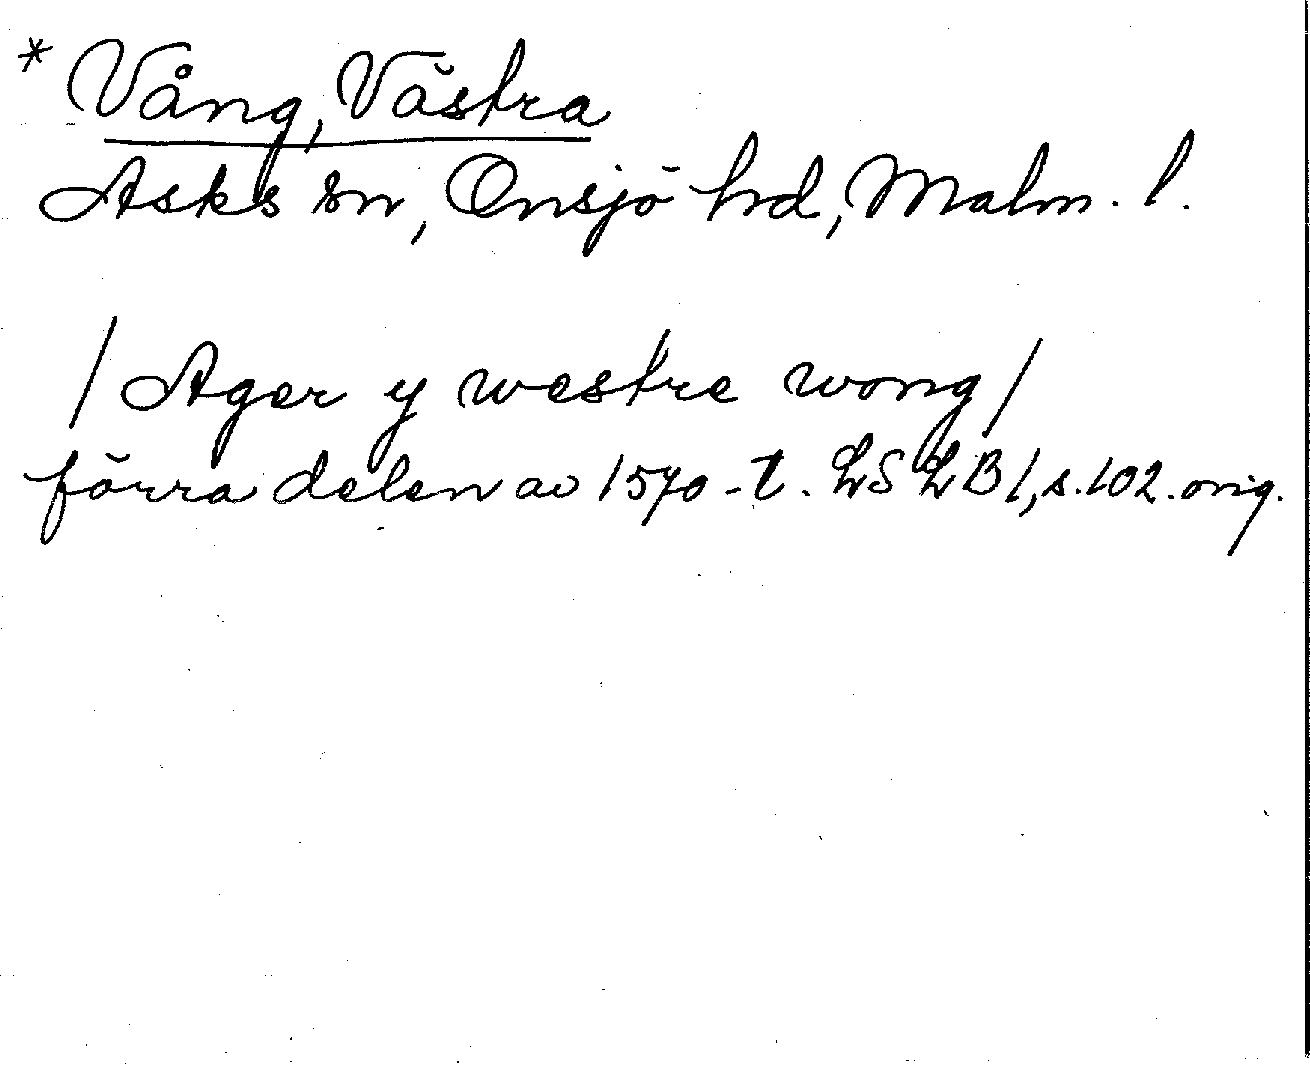 * Vång, Västra
Asks sn, Onsjö hd, Malm. l.
/ Ager y westre wong /
förra delen av 1570-t. LSLB 1, s. 102. orig.